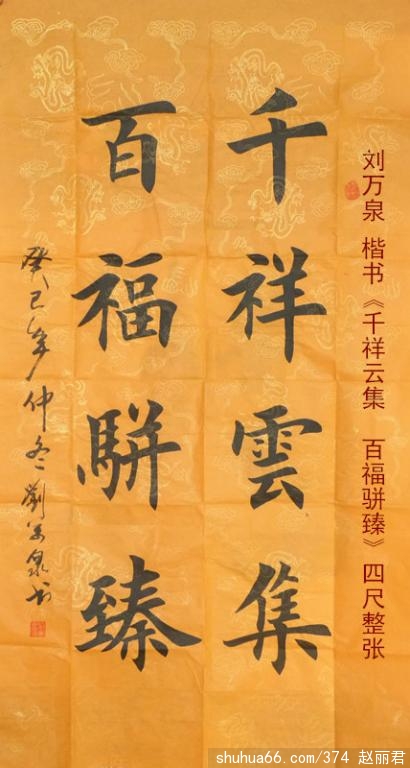 刘万泉 楷书《千祥云集 百福骈臻》四尺整张
千祥雲集
百福駢臻
癸巳年仲冬劉萬泉书
shuhua66.com/374 赵丽君